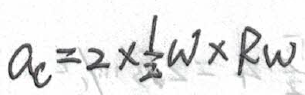 a_c = 2 × 1/2 W × RW